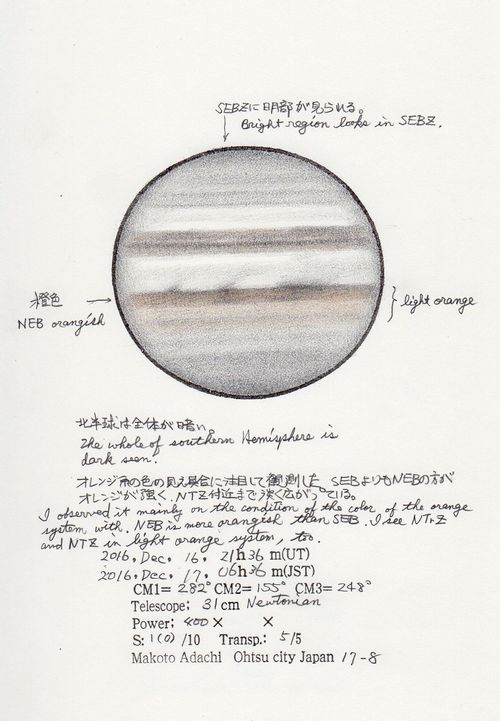 SEBZに明部が見られる。
Bright region looks in SEBZ.
橙色
NEB orangish
light orange
北半球は全体が暗い。
The whole of southern Hemisphere is
dark seen.
オレンジ系の色の見え具合に注目して観測した SEBよりもNEBの方が
オレンジが強く、NTZ付近まで淡く広がっている。
I observed it mainly on the condition of the color of the orange
system with. NEB is more orangish than SEB. I see NTrZ
and NTZ in light orange system, too.
2016, Dec, 16, 21h36 m(UT)
2016, Dec, 17, 06h36 m(JST)
CM1= 282° CM2= 155° CM3= 248°
Telescope; 31cm Newtonian
Power; 400 × ×
S: 1(0)/10 Transp.; 5/5
Makoto Adachi Ohtsu city Japan 17-8